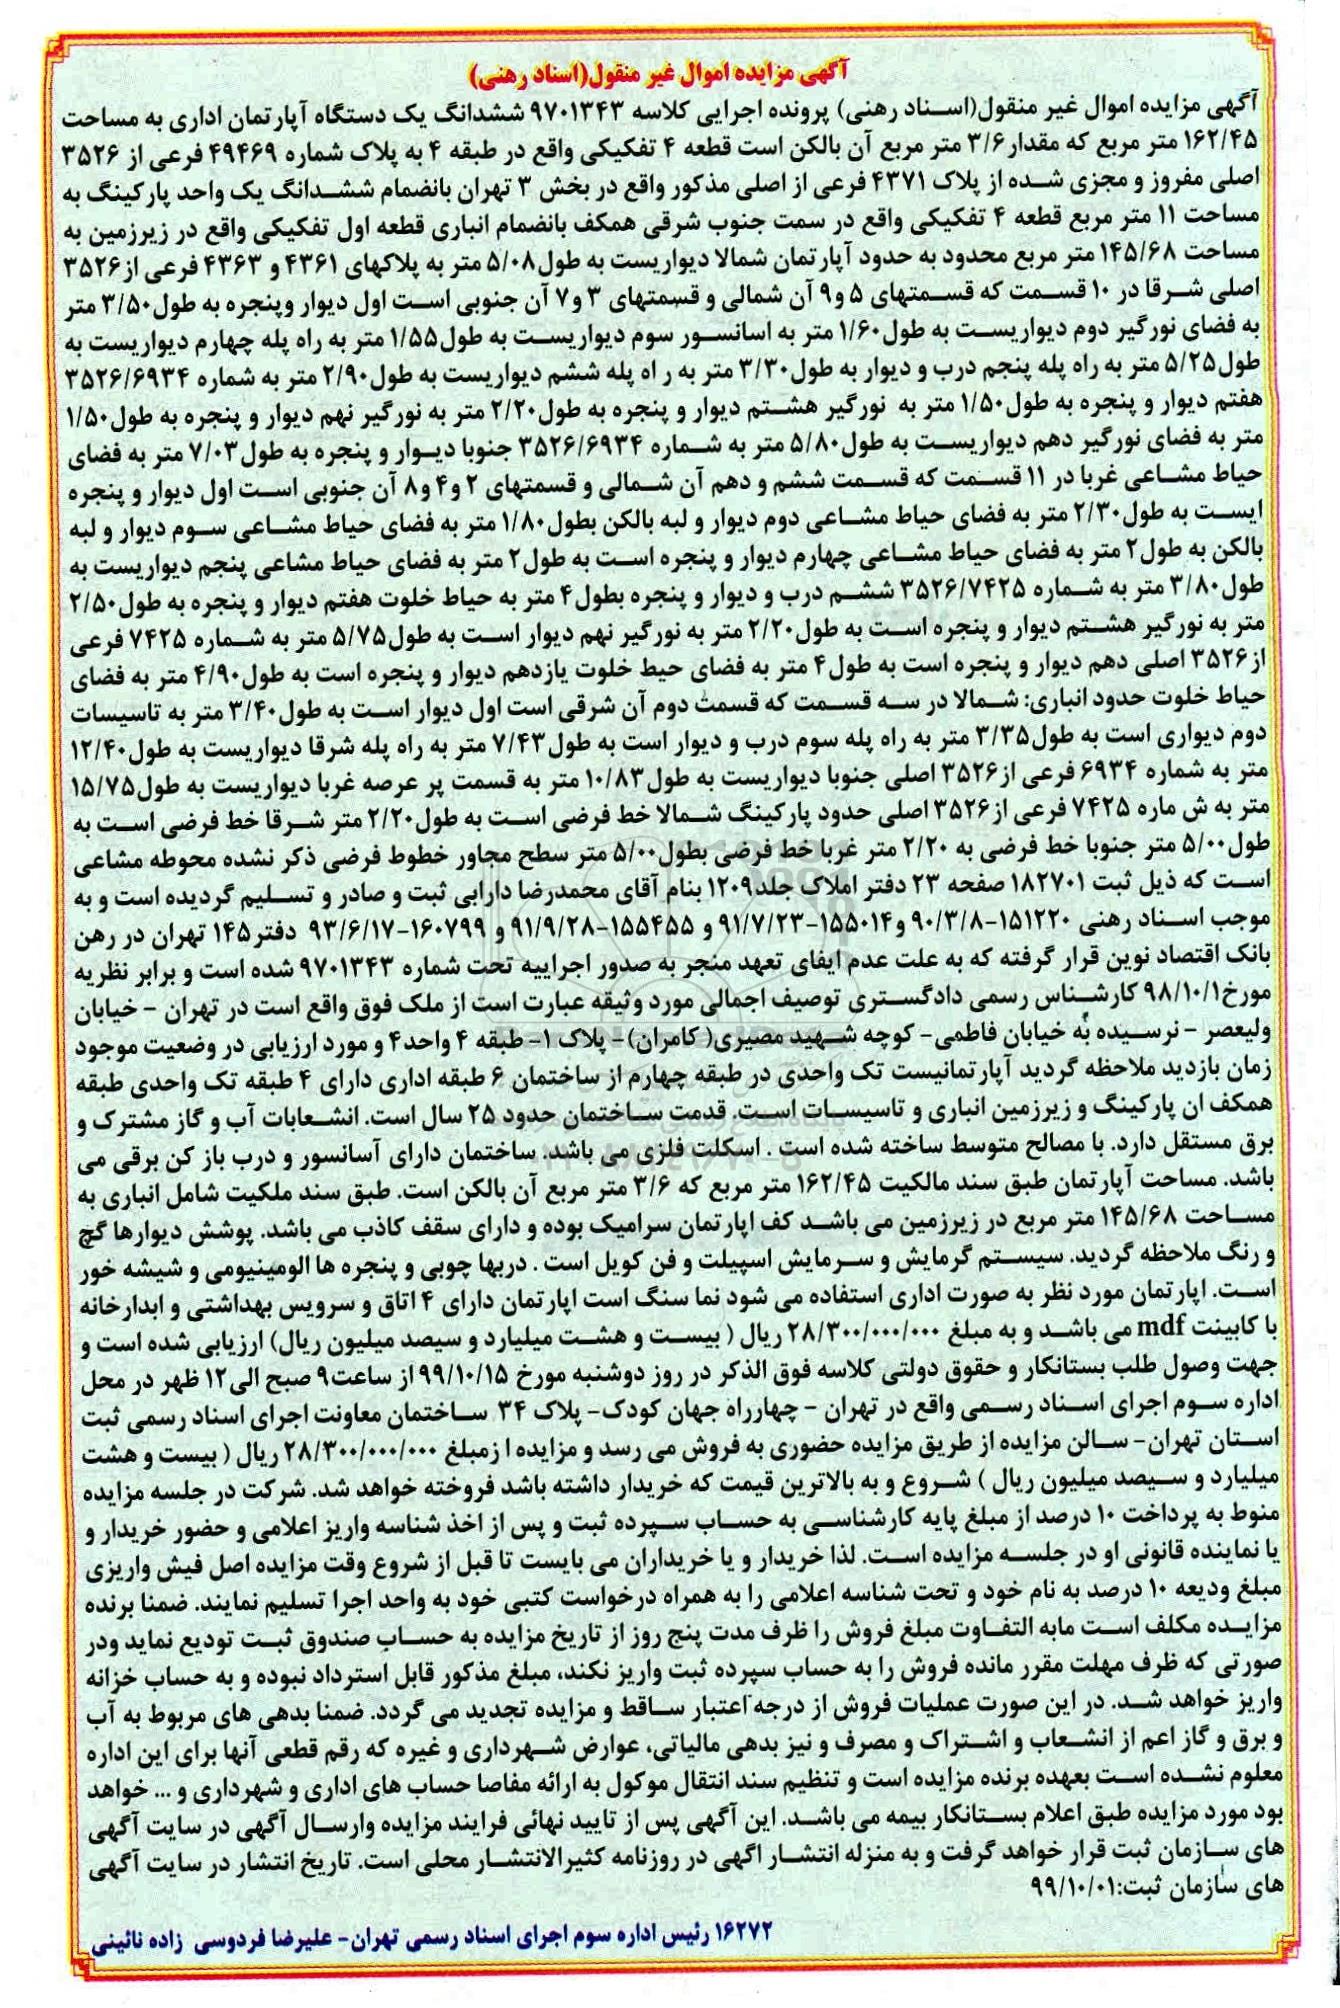 آگهی مزایده اموال غیر منقول(اسناد رهنی)
آگهی مزایده اموال غیر منقول(اسناد رهنی) پرونده اجرایی کلاسه ۹۷۰۱۳۴۳ ششدانگ یک دستگاه آپارتمان اداری به مساحت
۱۶۲/۴۵ متر مربع که مقدار ۳/۶ متر مربع آن بالکن است قطعه ۴ تفکیکی واقع در طبقه ۴ به پلاک شماره ۴۹۴۶۹ فرعی از ۳۵۲۶
اصلی مفروز و مجزی شده از پلاک ۴۳۷۱ فرعی از اصلی مذکور واقع در بخش ۳ تهران بانضمام ششدانگ یک واحد پارکینگ به
مساحت ۱۱ متر مربع قطعه ۴ تفکیکی واقع در سمت جنوب شرقی همکف بانضمام انباری قطعه اول تفکیکی واقع در زیرزمین به
مساحت ۱۴۵/۶۸ متر مربع محدود به حدود آپارتمان شمالا دیواریست به طول۵/۰۸ متر به پلاکهای ۴۳۶۱ و ۴۳۶۳ فرعی از۳۵۲۶
اصلی شرقا در ۱۰ قسمت که قسمتهای ۵ و۹ آن شمالی و قسمتهای ۳ و۷ آن جنوبی است اول دیوار وپنجره به طول۳/۵۰ متر
به فضای نورگیر دوم دیواریست به طول۱/۶۰ متر به اسانسور سوم دیواریست به طول۱/۵۵ متر به راه پله چهارم دیواریست به
طول۵/۲۵ متر به راه پله پنجم درب و دیوار به طول۳/۳۰ متر به ر اه پله ششم دیواریست به طول۲/۹۰ متر به شماره ۳۵۲۶/۶۹۳۴
هفتم دیوار و پنجره به طول۱/۵۰ متر به نورگیر هشتم دیوار و پنجره به طول۲/۲۰ متر به نورگیر نهم دیوار و پنجره به طول۱/۵۰
متر به فضای نورگیر دهم دیواریست به طول۵/۸۰ متر به شماره ۳۵۲۶/۶۹۳۴ جنوبا دیوار و پنجره به طول۷/۰۳ متر به فضای
حیاط مشاعی غربا در ۱۱ قسمت که قسمت ششم و دهم آن شمالی و قسمتهای ۲ و۴ و۸ آن جنوبی است اول دیوار و پنجره
ایست به طول۲/۳۰ متر به فضای حیاط مشاعی دوم دیوار و لبه بالکن بطول۱/۸۰ متر به فضای حیاط مشاعی سوم دیوار و لبه
بالکن به طول۲ متر به فضای حیاط مشاعی چهارم دیوار و پنجره است به طول۲ متر به فضای حیاط مشاعی پنجم دیواریست به
طول۳/۸۰ متر به شماره ۳۵۲۶/۷۴۲۵ ششم درب و دیوار و پنجره بطول۴ متر به حیاط خلوت هفتم دیوار و پنجره به طول۲/۵۰
متر به نورگیر هشتم دیوار و پنجره است به طول۲/۲۰ متر به نورگیر نهم دیوار است به طول۵/۷۵ متر به شماره ۷۴۲۵ فرعی
از۳۵۲۶ اصلی دهم دیوار و پنجره است به طول۴ متر به فضای حیط خلوت یازدهم دیوار و پنجره است به طول۴/۹۰ متر به فضای
حیاط خلوت حدود انباری: شمالا در سه قسمت که قسمت دوم آن شرقی است اول دیوار است به طول۳/۴۰ متر به تاسیسات
دوم دیواری است به طول۳/۳۵ متر به راه پله سوم درب و دیوار است به طول۷/۴۳ متر به راه پله شرقا دیواریست به طول۱۲/۴۰
متر به شماره ۶۹۳۴ فرعی از۳۵۲۶ اصلی جنوبا دیواریست به طول۱۰/۸۳ متر به قسمت پر عرصه غربا دیواریست به طول۱۵/۷۵
متر به ش ماره ۷۴۲۵ فرعی از۳۵۲۶ اصلی حدود پارکینگ شمالا خط فرضی است به طول۲/۲۰ متر شرقا خط فرضی است به
طول۵/۰۰ متر جنوبا خط فرضی به ۲/۲۰ متر غربا خط فرضی بطول۵/۰۰ متر سطح مجاور خطوط فرضی ذکر نشده محوطه مشاعی
است که ذیل ثبت ۱۸۲۷۰۱ صفحه ۲۳ دفتر املاک جلد۱۲۰۹ بنام آقای محمدرضا دارابی ثبت و صادر و تسلیم گردیده است و به
موجب اسناد رهنی ۱۵۱۲۲۰-۹۰/۳/۸ و۱۵۵۰۱۴-۹۱/۷/۲۳ و ۱۵۵۴۵۵-۹۱/۹/۲۸ و ۱۶۰۷۹۹-۹۳/۶/۱۷ دفتر۱۴۵ تهران در رهن
بانک اقتصاد نوین قرار گرفته که به علت عدم ایفای تعهد منجر به صدور اجراییه تحت شماره ۹۷۰۱۳۴۳ شده است و برابر نظریه
مورخ۹۸/۱۰/۱ کارشناس رسمی دادگستری توصیف اجمالی مورد وثیقه عبارت است از ملک فوق واقع است در تهران - خیابان
ولیعصر - نرسیده به خیابان فاطمی- کوچه شهید مصیری( کامران)- پلاک ۱- طبقه ۴ واحد۴ و مورد ارزیابی در وضعیت موجود
زمان بازدید ملاحظه گردید آپارتمانیست تک واحدی در طبقه چهارم از ساختمان ۶ طبقه اداری دارای ۴ طبقه تک واحدی طبقه
همکف ان پارکینگ و زیرزمین انباری و تاسیسات است. قدمت ساختمان حدود ۲۵ سال است. انشعابات آب و گاز مشترک و
برق مستقل دارد. با مصالح متوسط ساخته شده است . اسکلت فلزی می باشد. ساختمان دارای آسانسور و درب باز کن برقی می
باشد. مساحت آپارتمان طبق سند مالکیت ۱۶۲/۴۵ متر مربع که ۳/۶ متر مربع آن بالکن است. طبق سند ملکیت شامل انباری به
مساحت ۱۴۵/۶۸ متر مربع در زیرزمین می باشد کف اپارتمان سرامیک بوده و دارای سقف کاذب می باشد. پوشش دیوارها گچ
و رنگ ملاحظه گردید. سیستم گرمایش و سرمایش اسپیلت و فن کویل است . دربها چوبی و پنجره ها الومینیومی و شیشه خور
است. اپارتمان مورد نظر به صورت اداری استفاده می شود نما سنگ است اپارتمان دارای ۴ اتاق و سرویس بهداشتی و ابدارخانه
با کابینت mdf می باشد و به مبلغ ۲۸/۳۰۰/۰۰۰/۰۰۰ ریال ( بیست و هشت میلیارد و سیصد میلیون ریال) ارزیابی شده است و
جهت وصول طلب بستانکار و حقوق دولتی کلاسه فوق الذکر در روز دوشنبه مورخ ۹۹/۱۰/۱۵ از ساعت۹ صبح الی۱۲ ظهر در محل
اداره سوم اجرای اسناد رسمی واقع در تهران - چهارراه جهان کودک- پلاک ۳۴ ساختمان معاونت اجرای اسناد رسمی ثبت
استان تهران- سالن مزایده از طریق مزایده حضوری به فروش می رسد و مزایده ا زمبلغ ۲۸/۳۰۰/۰۰۰/۰۰۰ ریال ( بیست و هشت
میلیارد و سیصد میلیون ریال ) شروع و به بالاترین قیمت که خریدار داشته باشد فروخته خواهد شد. شرکت در جلسه مزایده
منوط به پرداخت ۱۰ درصد از مبلغ پایه کارشناسی به حساب سپرده ثبت و پس از اخذ شناسه واریز اعلامی و حضور خریدار و
یا نماینده قانونی او در جلسه مزایده است. لذا خریدار و یا خریداران می بایست تا قبل از شروع وقت مزایده اصل فیش واریزی
مبلغ ودیعه ۱۰ درصد به نام خود و تحت شناسه اعلامی را به همراه درخواست کتبی خود به واحد اجرا تسلیم نمایند. ضمنا برنده
مزایده مکلف است مابه التفاوت مبلغ فروش را ظرف مدت پنج روز از تاریخ مزایده به حساب صندوق ثبت تودیع نماید ودر
صورتی که ظرف مهلت مقرر مانده فروش را به حساب سپرده ثبت واریز نکند، مبلغ مذکور قابل استرداد نبوده و به حساب خزانه
واریز خواهد شد. در این صورت عملیات فروش از درجه اعتبار ساقط و مزایده تجدید می گردد. ضمنا بدهی های مربوط به آب
و برق و گاز اعم از انشعاب و اشتراک و مصرف و نیز بدهی مالیاتی، عوارض شهرداری و غیره که رقم قطعی آنها برای این اداره
معلوم نشده است بعهده برنده مزایده است و تنظیم سند انتقال موکول به ارائه مفاصا حساب های اداری و شهرداری و ... خواهد
بود مورد مزایده طبق اعلام بستانکار بیمه می باشد. این آگهی پس از تایید نهائی فرایند مزایده وارسال آگهی در سایت آگهی
های سازمان ثبت قرار خواهد گرفت و به منزله انتشار اگهی در روزنامه کثیرالانتشار محلی است. تاریخ انتشار در سایت آگهی
های سازمان ثبت:۹۹/۱۰/۰۱
۱۶۲۷۲ رئیس اداره سوم اجرای اسناد رسمی تهران- علیرضا فردوسی زاده نائینی